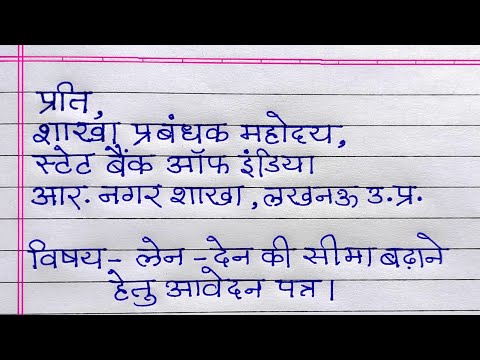 प्रति,
शाखा प्रबंधक महोदय,
स्टेट बैंक ऑफ इंडिया
आर. नगर शाखा, लखनऊ उ.प्र.
विषय- लेन-देन की सीमा बढ़ाने
हेतु आवेदन पत्र।